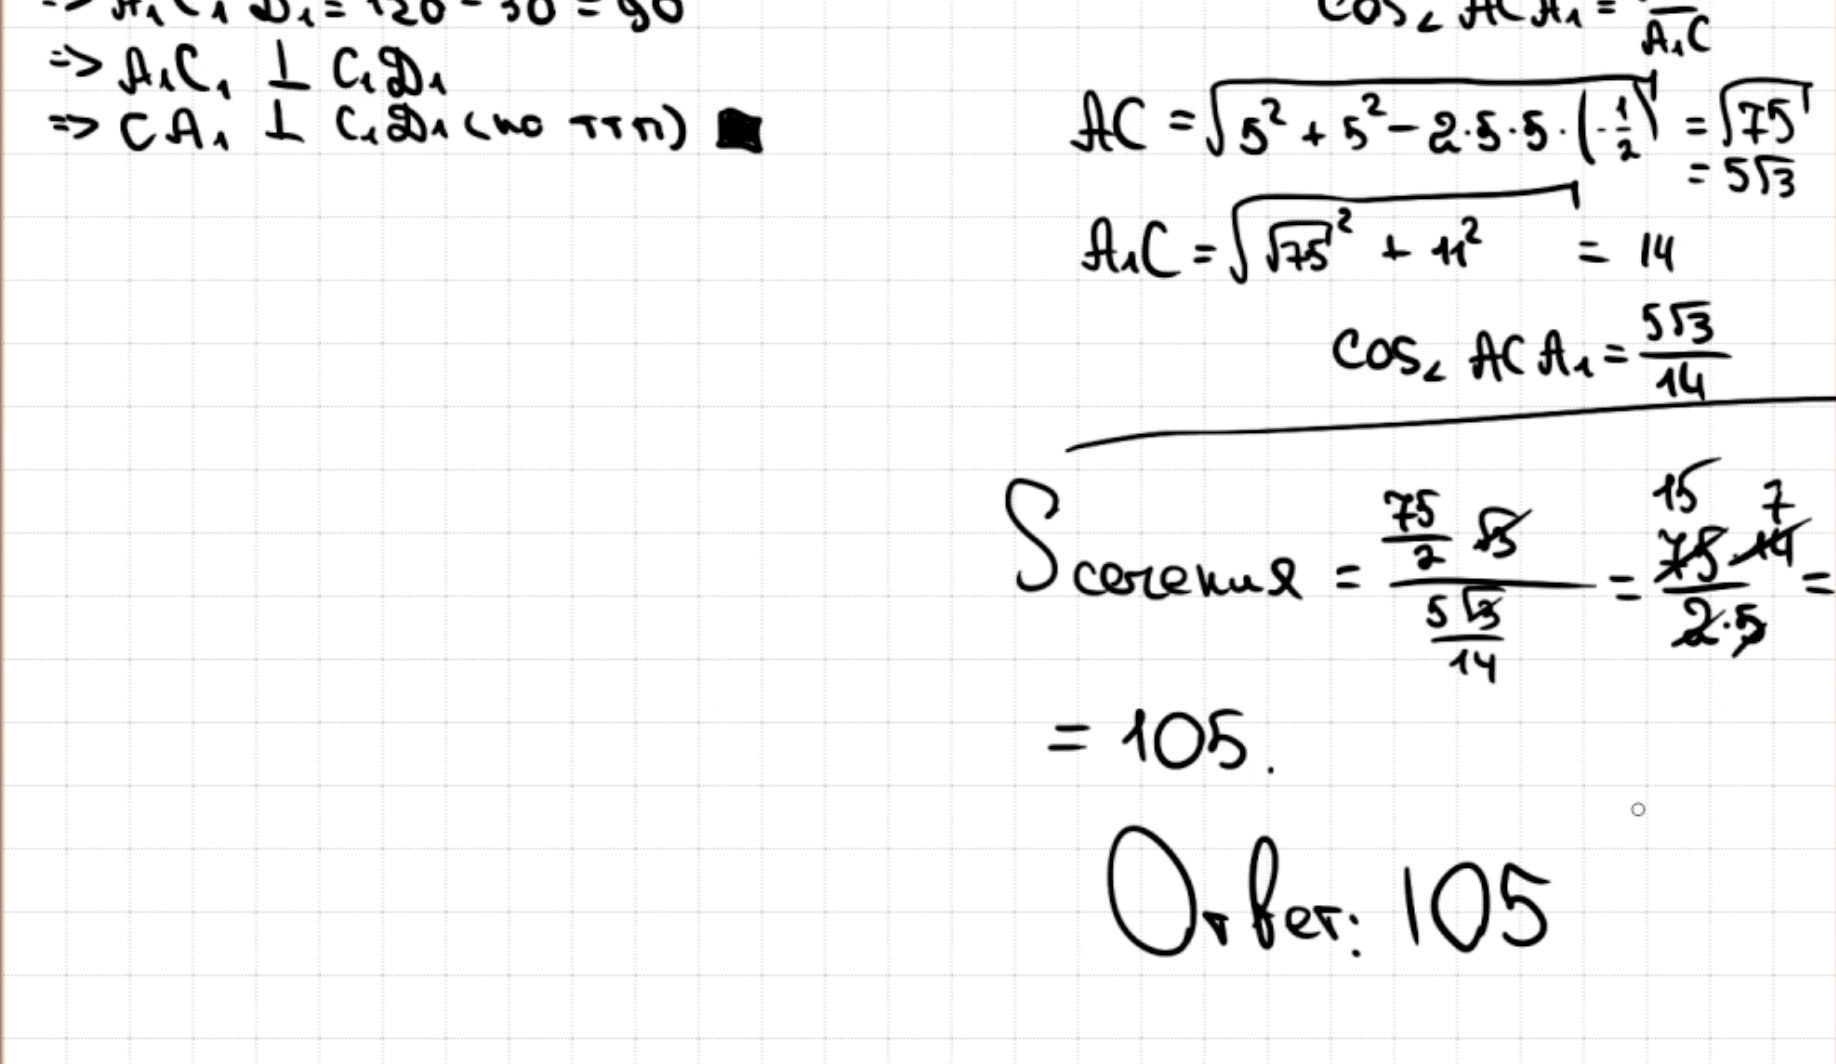 => A₁C₁D₁ = 120 - 30 = 90
=> A₁C₁ ⊥ C₁D₁
=> CA₁ ⊥ C₁D₁ (по ттп) ■
cos∠ACA₁ = —/A₁C
AC = √(5² + 5² - 2·5·5·(-1/2)) = √75
= 5√3
A₁C = √(√75² + 11²) = 14
cos∠ACA₁ = 5√3/14
Sсечения = (75/2 √3)/(5√3/14) = 15 7 75·14/2·5 =
= 105.
Ответ: 105